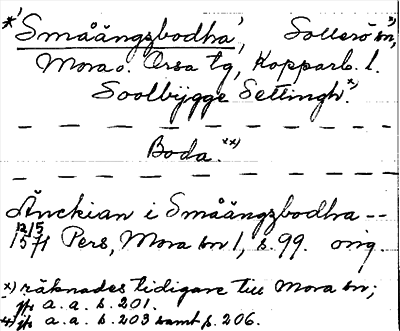 *'Småängzbodha', Sollerö sn, *)
Mora o. Orsa tg, Kopparb. l.
Soolbygge Settingh. *)
Boda. **)
Änckian i Småängzbodha --
12/5 1571 Pers, Mora sn 1, s. 99. orig.
*) räknades tidigare till Mora sn;
jfr a. a. s. 201.
**) jfr a. a. s. 203 samt s. 206.